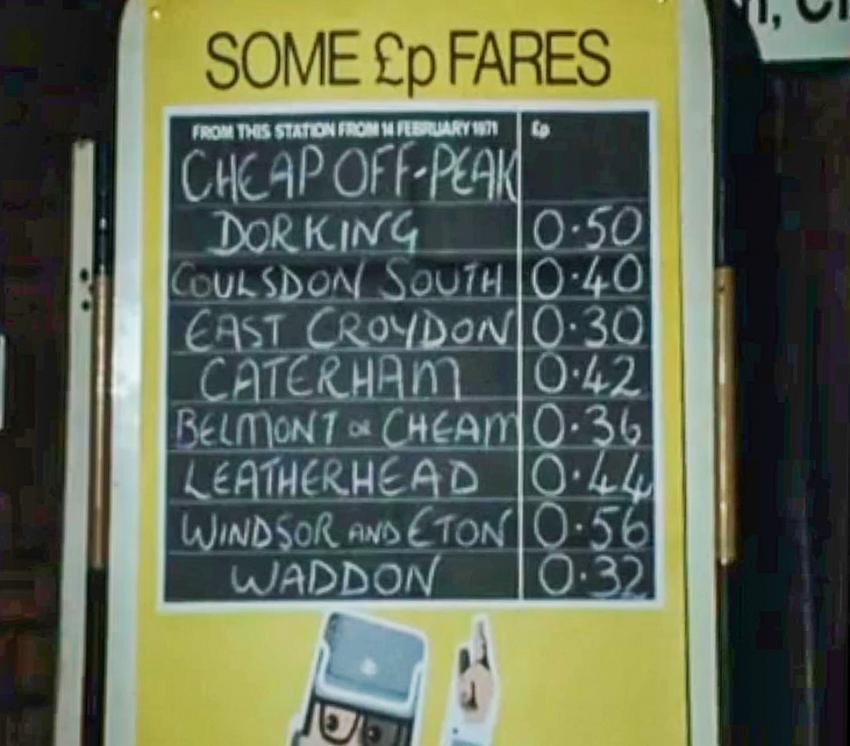 SOME £p FARES
FROM THIS STATION FROM 14 FEBRUARY 1971 £p
CHEAP OFF-PEAK
DORKING 0·50
COULSDON SOUTH 0·40
EAST CROYDON 0·30
CATERHAM 0·42
BELMONT OR CHEAM 0·36
LEATHERHEAD 0·44
WINDSOR AND ETON 0·56
WADDON 0·32